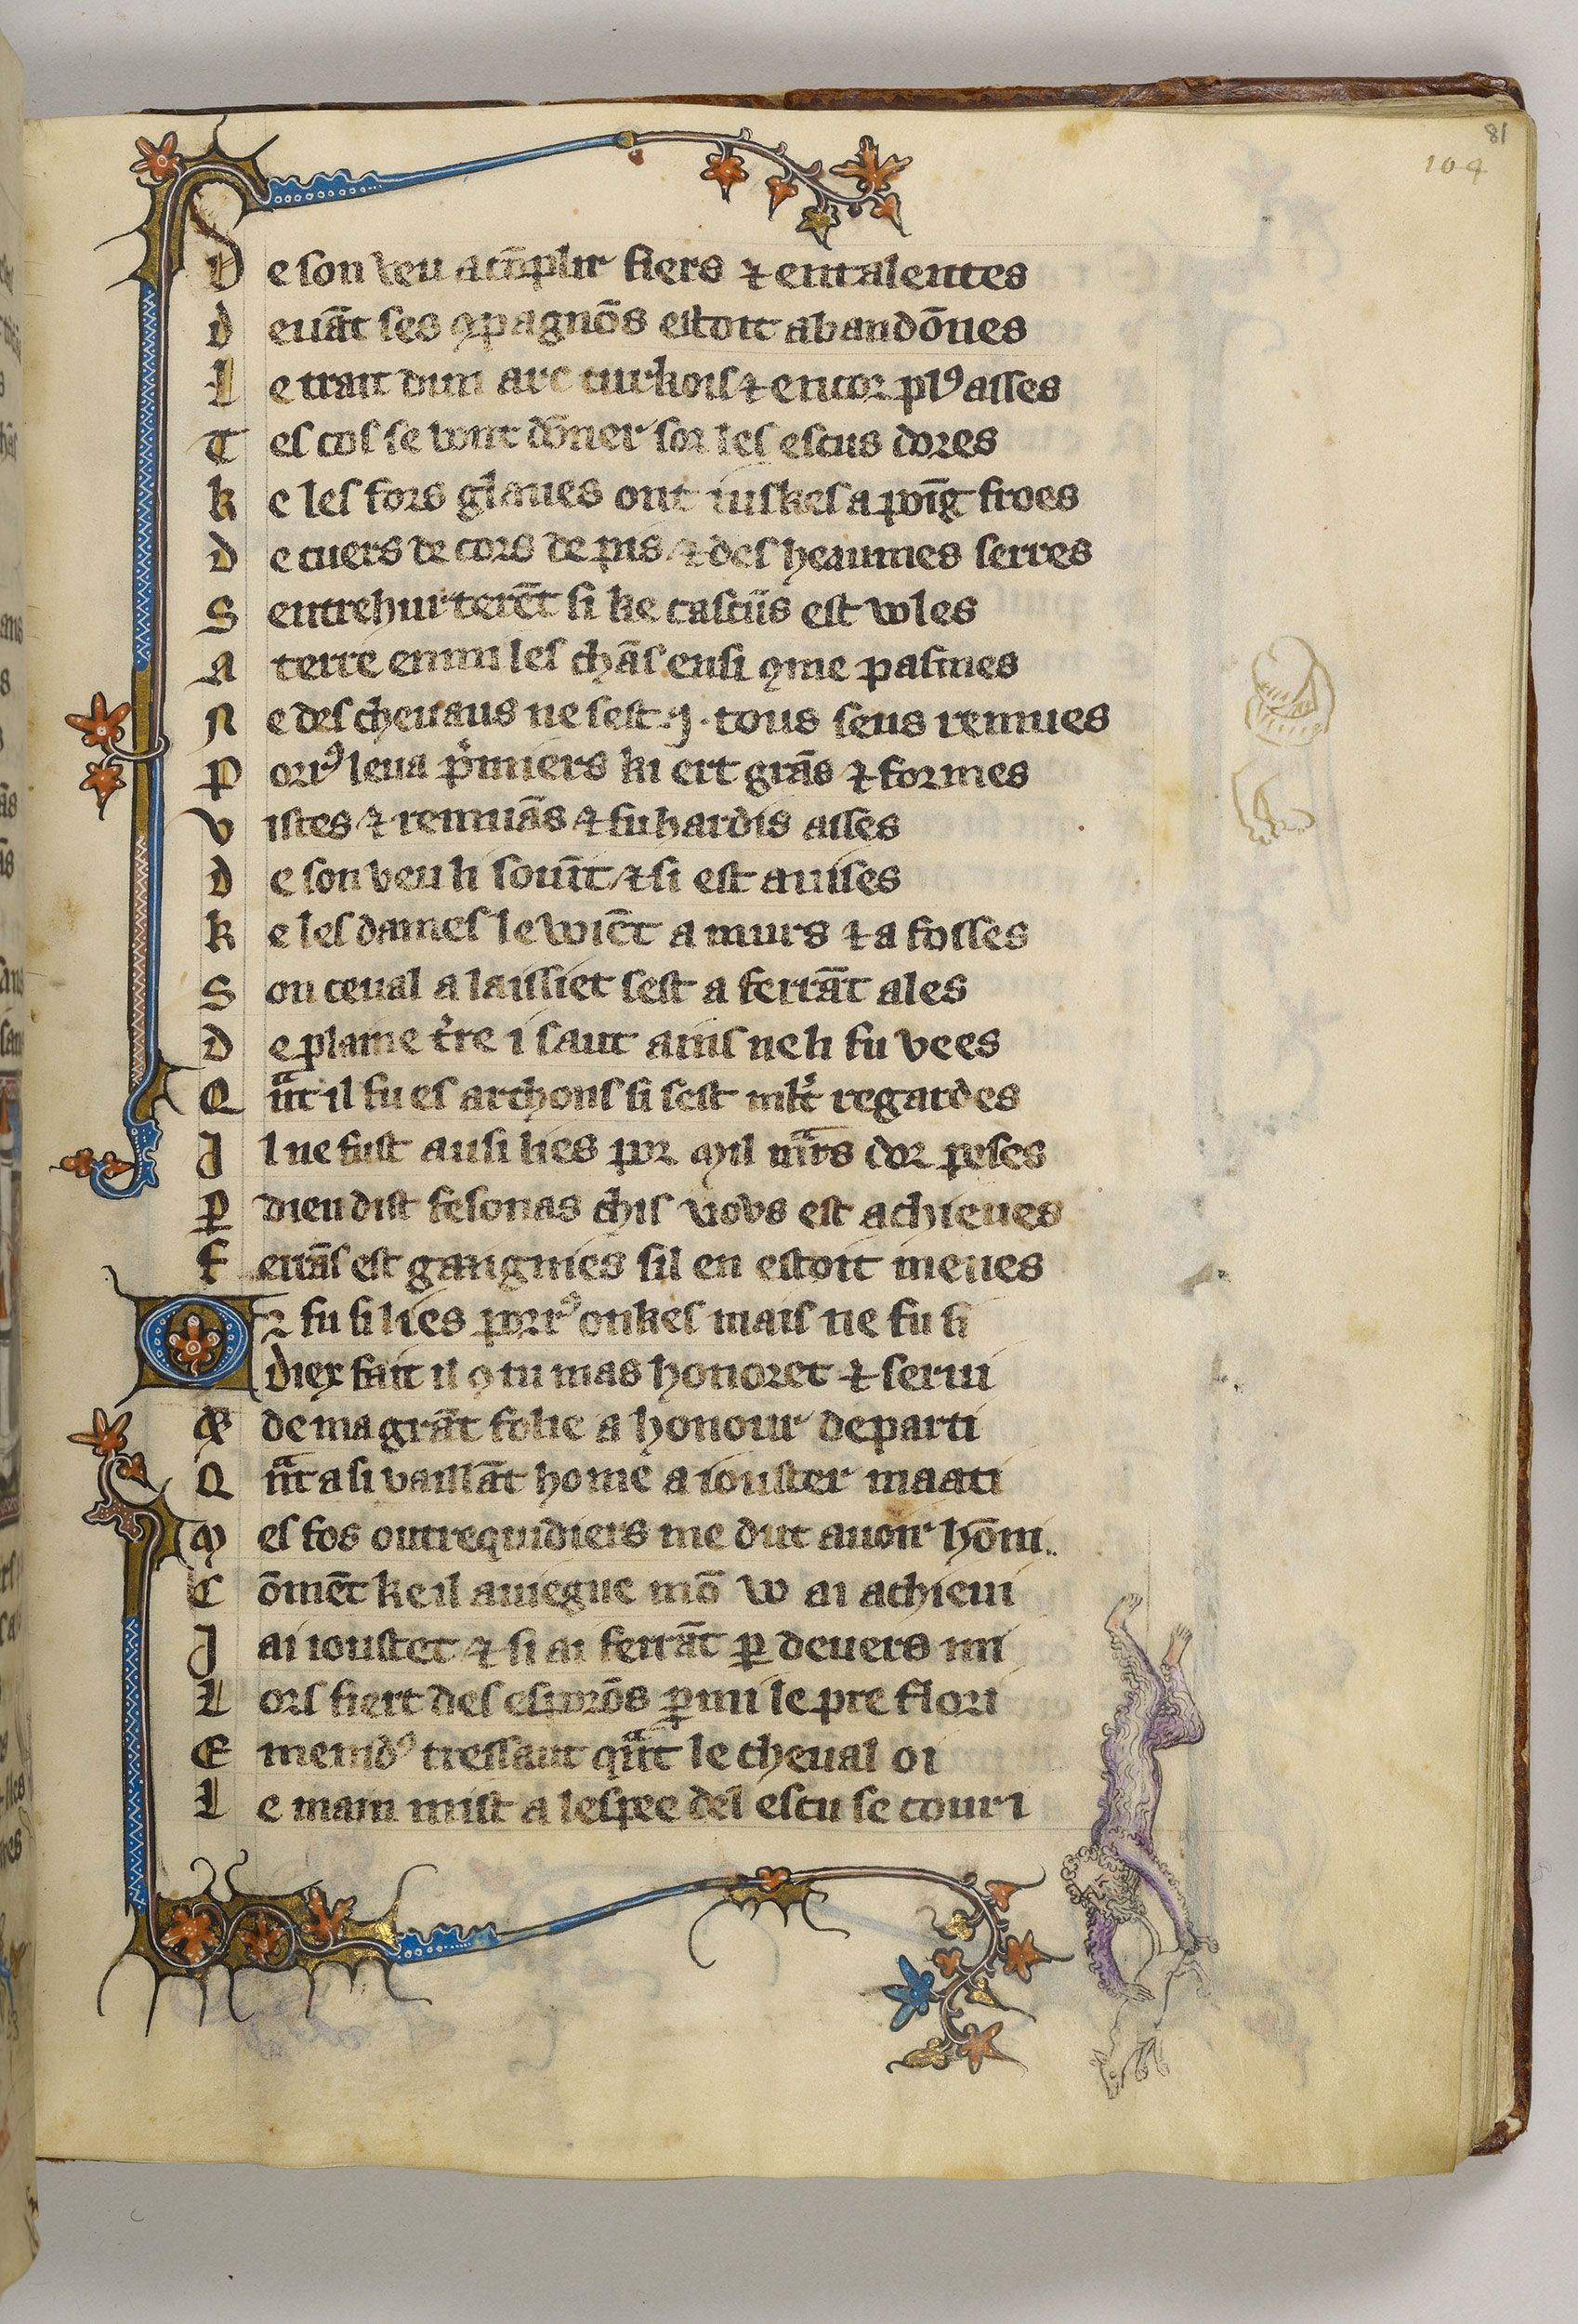 81
104
De son veu acõplir fiers ⁊ entalentes
deuãt ses ꝯpagnõs estoit abandõnes
Le trait dun arc turkois ⁊ encor plꝰ asses
Tels cos se vont dõner sor les escus dores
ke les fors glaues ont iuskes a poĩg froes
De cuers de cors de pis ⁊ des heaumes serres
Sentrehurterẽt si ke cascũs est voles
A terre enmi les chãs ensi ꝯme pasmes
Ne des cheuaus ne sest .j. tous seus remues
Porrꝰ leua pͥmiers ki ert grãs ⁊ formes
Vistes ⁊ remuãs ⁊ fu hardis asses
de son veu li souĩt ⁊ si est auises
ke les dames le voiẽt a murs ⁊ a fosses
Son ceual a laissiet sest a ferrãt ales
De plaine t̉re i saut ains ne li fu vees
Qᵃnt il fu es archons si sest ml̉t regardes
Il ne fust ausi lies por mil mᵃrs dor peses
ꝑ dieu dist fesonas chis vovs est achieues
ferrãs est gaaignies sil en estoit menes
Or fu si lies porrꝰ onkes mais ne fu si
diex fait il ꝯ tu mas honoret ⁊ serui
Q̃ de ma grãt folie a honour departi
Qᵃnt a si vaillãt home a iouster maati
Mes fos outrequidiers me dut auoir hõni..
Cõmẽt ke il auiegne mõ vo ai achieui
Jai ioustet ⁊ si ai ferrãt ꝑ deuers mi
Lors fiert des esporõs ꝑmi le pre flori
Emenidꝰ tressaut qᵃnt le cheual oi
Le main mist a lespee del escu se couuri